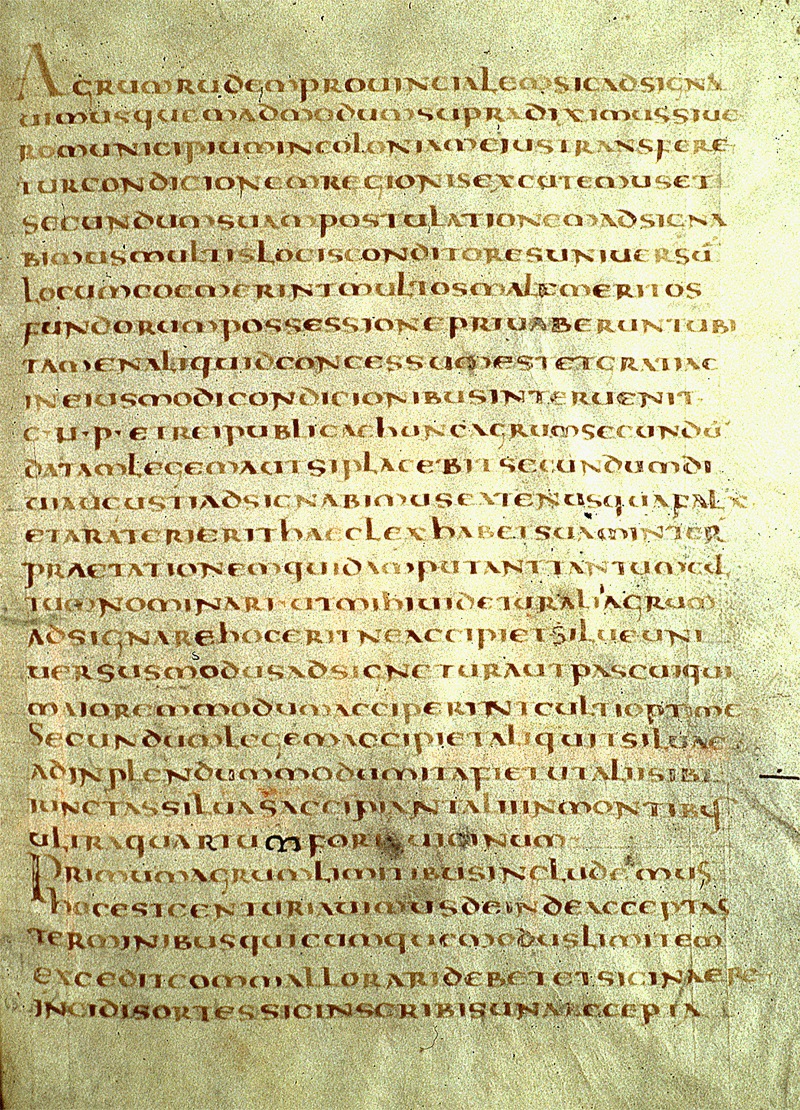 AGRUMRUDEMPROUINCIALEMSICADSIGNA
UIMUSQUEMADMODUMSUPRADIXIMUSSIUE
ROMUNICIPIUMINCOLONIAMEIUSTRANSFERE
TURCONDICIONEMREGIONISEXCUTEMUSET
SECUNDUMSUAMPOSTULATIONEMADSIGNA
BIMUSMULTISLOCISCONDITORESUNIUERSŪ
LOCUMCOEMERINTMULTOSMALEMERITOS
FUNDORUMPOSSESSIONEPRIUABERUNTUBI
TAMENALIQUIDCONCESSUMESTETGRATIAE
INEIUSMODICONDICIONIBUSINTERUENIT·
C·U·P·ETREIPUBLICAEHUNCAGRUMSECUNDŪ
DATAMLEGEMAUTSIPLACEBITSECUNDUMDI
UIAUGUSTIADSIGNABIMUSEATENUSQUAFALX
ETARATERIERITHAECLEXHABETSUAMINTER
PRAETATIONEMQUIDAMPUTANTTANTUMCUL
TUMNOMINARI·UTMIHIUIDETURALIAGRUM
ADSIGNAREHOCERITNEACCIPIETSILUEUNI
UERSUSMODUSADSIGNETURAUTPASCUIQUI
MAIOREMMODUMACCIPERINTCULTIOPTIME
SECUNDUMLEGEMACCIPIETALIQUITSILUAE
ADINPLENDUMMODUMITAFIETUTALIISIBI
IUNCTASSILUASACCIPIANTALIIINMONTIBUS
ULTRAQUARTUMFORTEUICINUM
PRIMUMAGRUMLIMITIBUSINCLUDEMUS
HOCESTCENTURIAUIMUSDEINDEACCEPTAS
TERMINIBUSQUICUMQUEMODUSLIMITEM
EXCEDITCOMMALLORARIDEBETETSICINAERE
INCIDISORTESSICINSCRIBISUNAACCEPTA